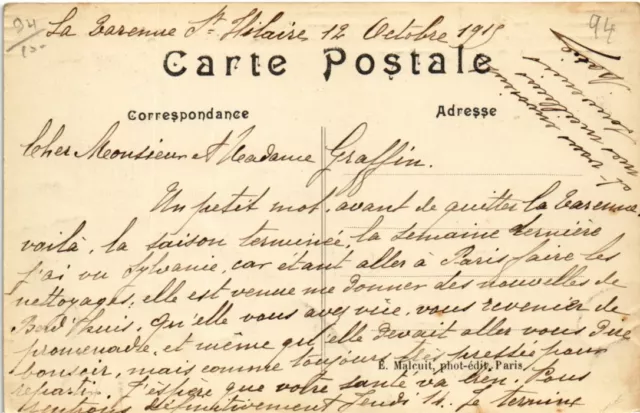 La Varenne St Hilaire 12 Octobre 1915
94
94
Carte Postale
Correspondance
Adresse
Cher Monsieur et Madame Graffin.
Un petit mot, avant de quitter la Varenne
voilà, la saison terminée, la semaine dernière
j'ai vu Sylvanie, car étant aller à Paris faire les
nettoyages, elle est venue me donner des nouvelles de
qu'elle vous avez vue, vous revenier de
promenade, et même qu'elle devait aller vous dire
bonsoir, mais comme toujours très pressée pour
E. Malcuit, phot-édit, Paris.
repartir. J'éspère que votre santé va bien. Nous
définitivement Jeudi 14. Je termine